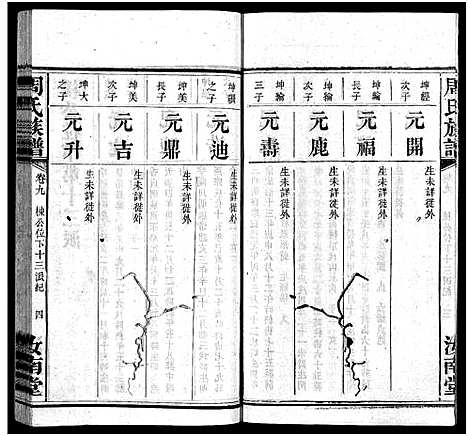 周氏族譜
汝南堂
坤經
元開
生未詳徙外
坤綸
次子
元福
生未詳徙外
坤綸
次子
元鹿
生未詳徙外
坤綸
三子
元壽
生未詳徙外
之子
元迪
生未詳徙外
坤美
長子
元鼎
生未詳徙外
坤美
次子
元吉
生未詳徙外
坤大
之子
元升
生未詳徙外
周氏族譜
卷九
棟公位下十三派紀
四
汝南堂